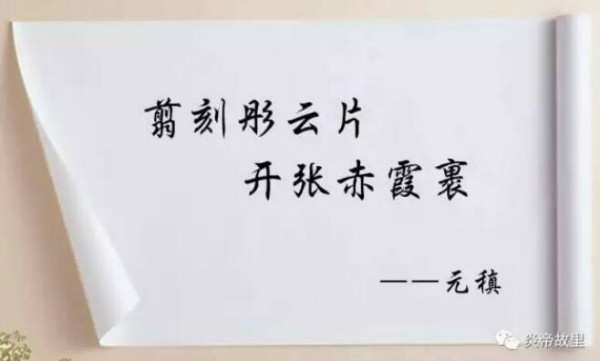 翦刻彤云片
开张赤霞裹
——元稹
炎帝故里